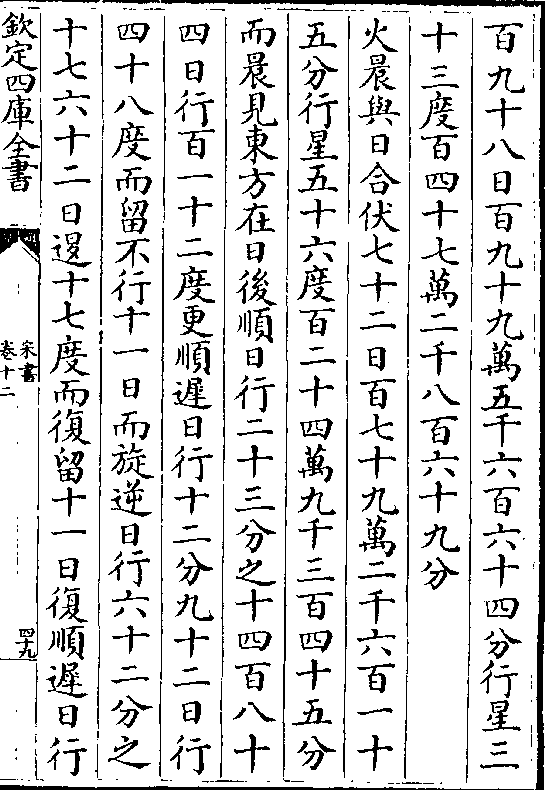 百九十八日百九十九萬五千六百六十四分行星三
十三度百四十七萬二千八百六十九分
火晨與日合伏七十二日百七十九萬二千六百一十
五分行星五十六度百二十四萬九千三百四十五分
而晨見東方在日後順日行二十三分之十四百八十
四日行百一十二度更順遲日行十二分九十二日行
四十八度而留不行十一日而旋逆日行六十二分之
十七六十二日退十七度而復留十一日復順遲日行
欽定四庫全書
宋書
卷十二
四十九